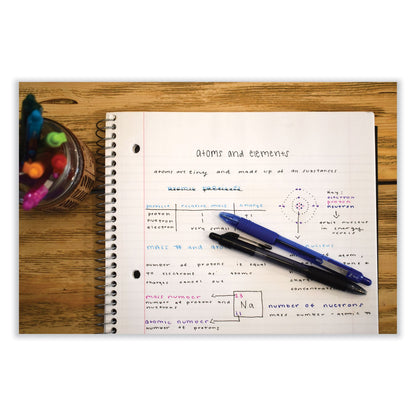 atoms and elements
atoms are tiny and made up of th substances
particle relative mass charge
proton 1
neutron 1
electron very small
Key:
electron
proton
neutron
orbit nucleus
in energy
mass # and
nucleus
number of protons is equal
to electrons so atoms
charges cancel out
mass number
number of protons and
neutrons
23
Na
11
number of neutrons
mass number - atomic #
atomic number
number of protons